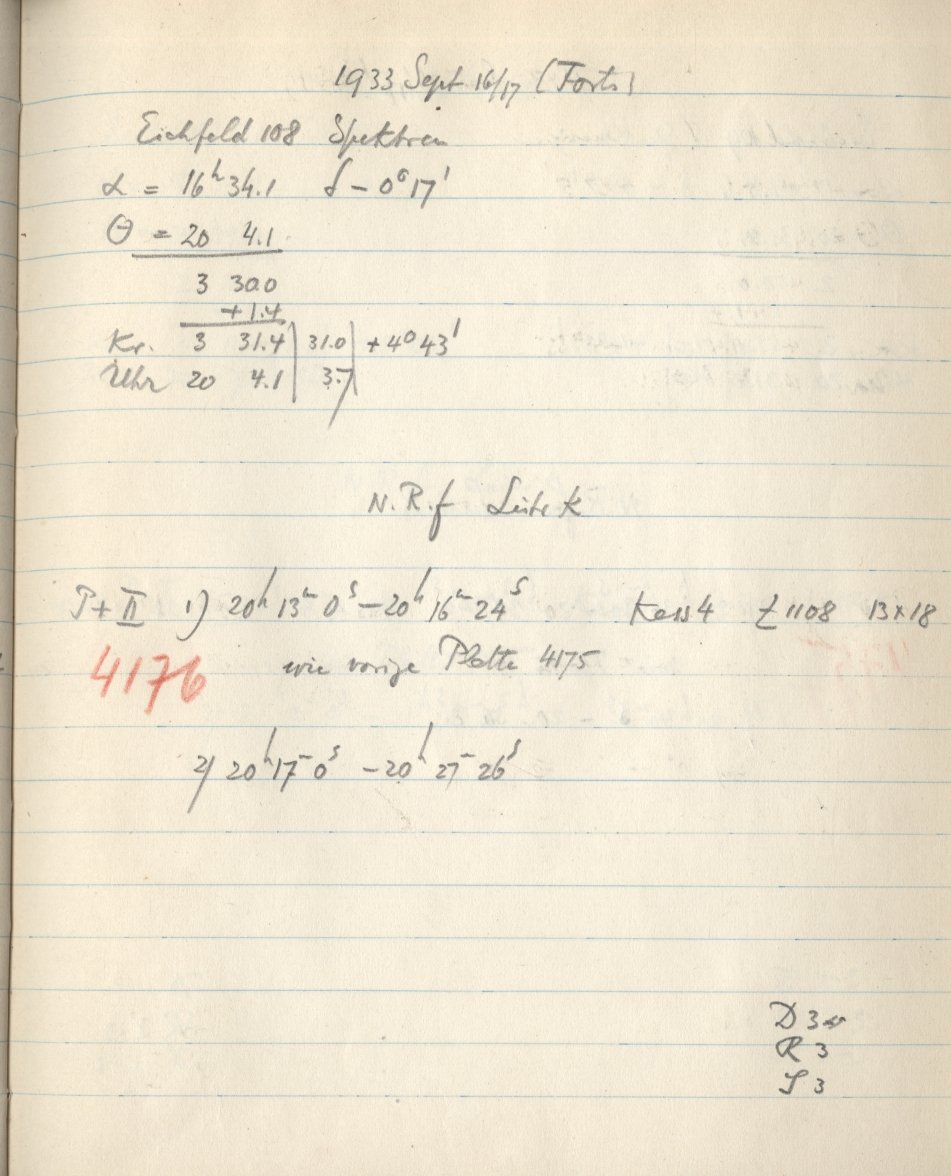 1933 Sept 16/17 (Forts)
Eichfeld 108 Spektren
α = 16h 34.1 δ - 0° 17'
Θ = 20 4.1
3 30.0
+1.4
Kr. 3 31.4 | 31.0 | +4° 43'
Uhr 20 4.1 | 3.7 |
N.R.f
P+II 1) 20h 13m 0s - 20h 16m 24s Kass 4 1108 13×18
4176 wie vorige Platte 4175
2) 20h 17m 0s - 20h 27m 26s
D 3
R 3
S 3